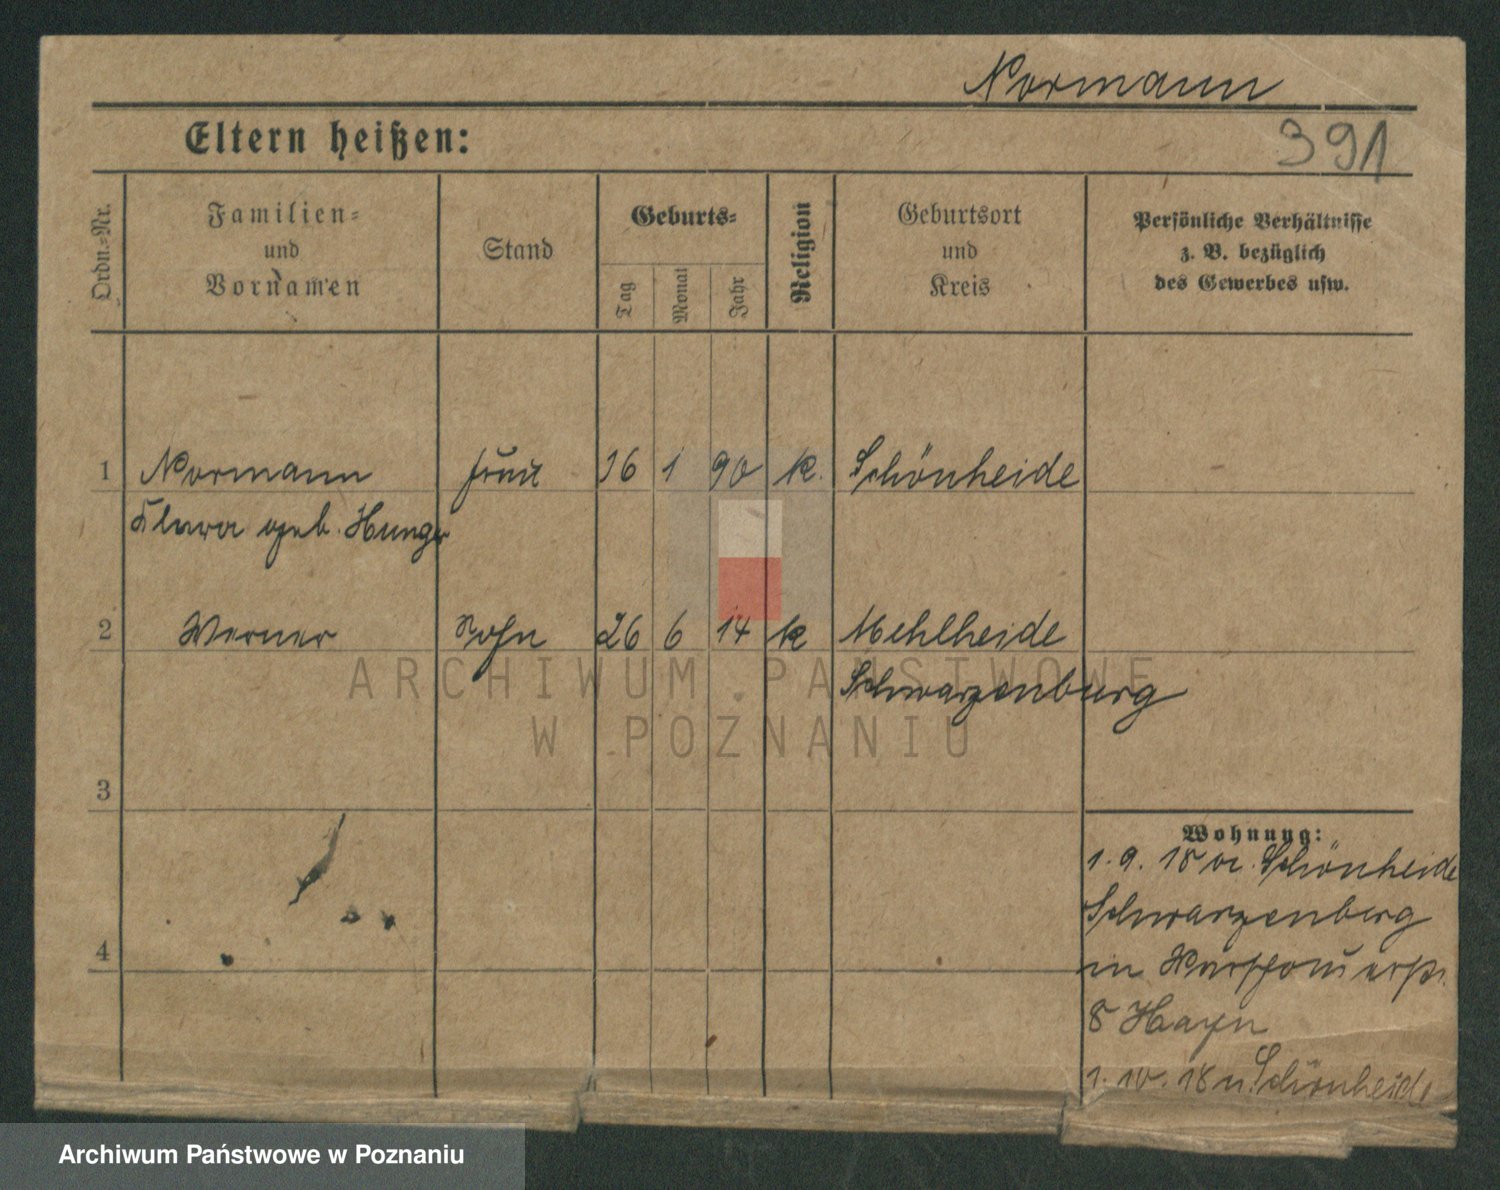 Normann
391
Eltern heißen:
Ordn.-Nr.
Familien-
und
Vornamen
Stand
Geburts-
Tag
Monat
Jahr
Religion
Geburtsort
und
Kreis
Persönliche Verhältnisse
z. B. bezüglich
des Gewerbes usw.
1 Normann Frau 16 1 90 k. Schönheide
Klara geb. Hunger
2 Werner Sohn 26 6 14 k Mehlheide
Schwarzenburg
3
Wohnung:
1. 9. 18 v. Schönheide
Schwarzenberg
in
4
8 Hayn
1. 10. 18 n. Schönheide
ARCHIWUM PAŃSTWOWE
W POZNANIU
Archiwum Państwowe w Poznaniu